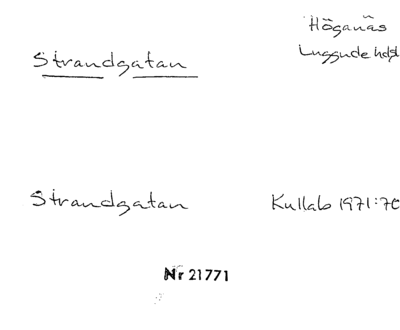 Höganäs
Strandgatan
Luggude hdsl
Strandgatan Kullab 1971:70
Nr 21771